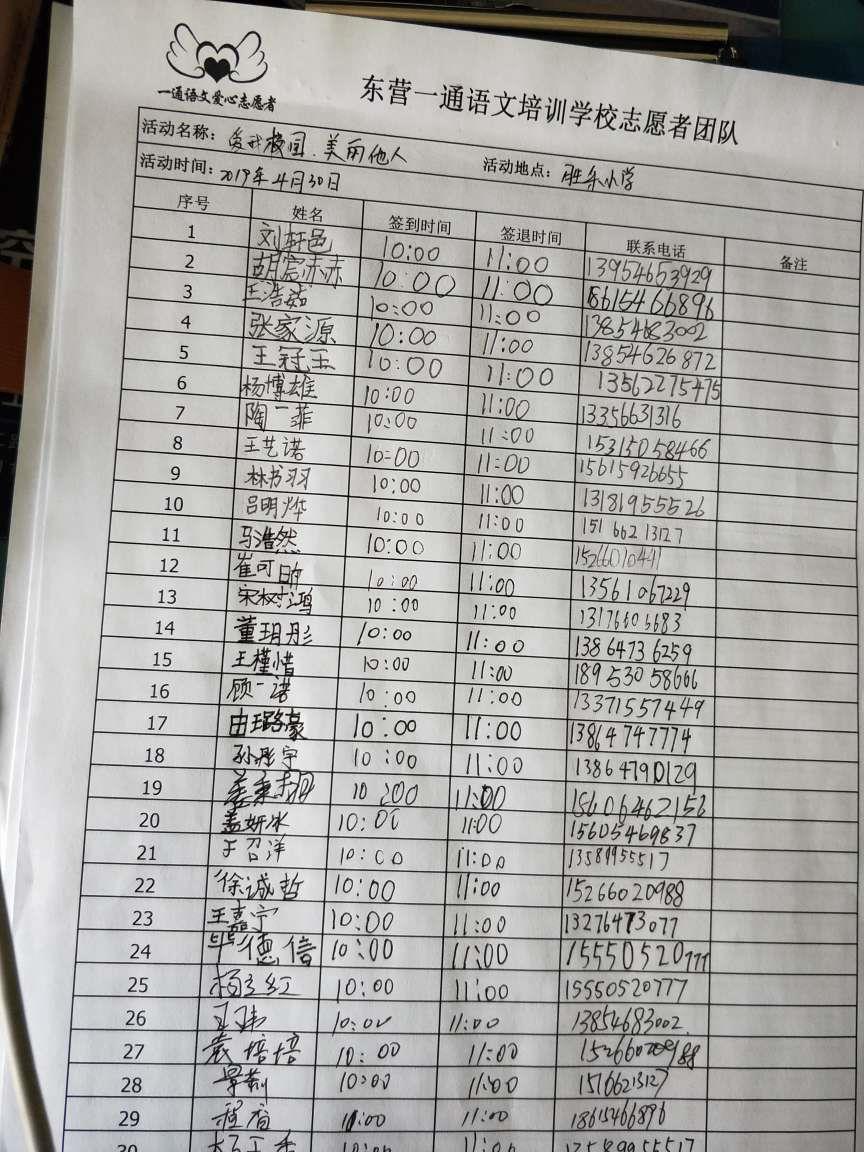 一通语文爱心志愿者
东营一通语文培训学校志愿者团队
活动名称: 爱我校园、美丽他人 活动地点: 胜东小学
活动时间: 2019年4月30日
序号 姓名 签到时间 签退时间 联系电话 备注
1 刘轩邑 10:00 11:00 13954653929
2 胡宸赫 10:00 11:00 18615466896
3 王浩 10:00 11:00 13854683002
4 张家源 10:00 11:00 13854626872
5 王冠玉 10:00 11:00 13562275475
6 杨博雄 10:00 11:00 13356631316
7 陶一菲 10:00 11:00 15315058466
8 王艺诺 10:00 11:00 15615926655
9 林书羽 10:00 11:00 13181955526
10 吕明烨 10:00 11:00 15166213127
11 马浩然 10:00 11:00 15266010441
12 崔可 10:00 11:00 13561067229
13 宋树鸿 10:00 11:00
14 董玥彤 10:00 11:00 13864736259
15 王槿惜 10:00 11:00 18953058666
16 顾一诺 10:00 11:00 13371557449
17 由璐豪 10:00 11:00 13864747774
18 孙彤宇 10:00 11:00 13864790129
19 10:00 11:00 15606462156
20 盖妍冰 10:00 11:00 15605469837
21 于召洋 10:00 11:00 13589955517
22 徐诚哲 10:00 11:00 15266020988
23 王嘉宁 10:00 11:00 13276473077
24 毕德信 10:00 11:00 15550520777
25 杨红 10:00 11:00 15550520777
26 王玮 10:00 11:00 13854683002
27 培培 10:00 11:00 15266020988
28 10:00 11:00 15166213127
29 程眉 11:00 11:00 18615466896
30 10:00 11:00 13589955517